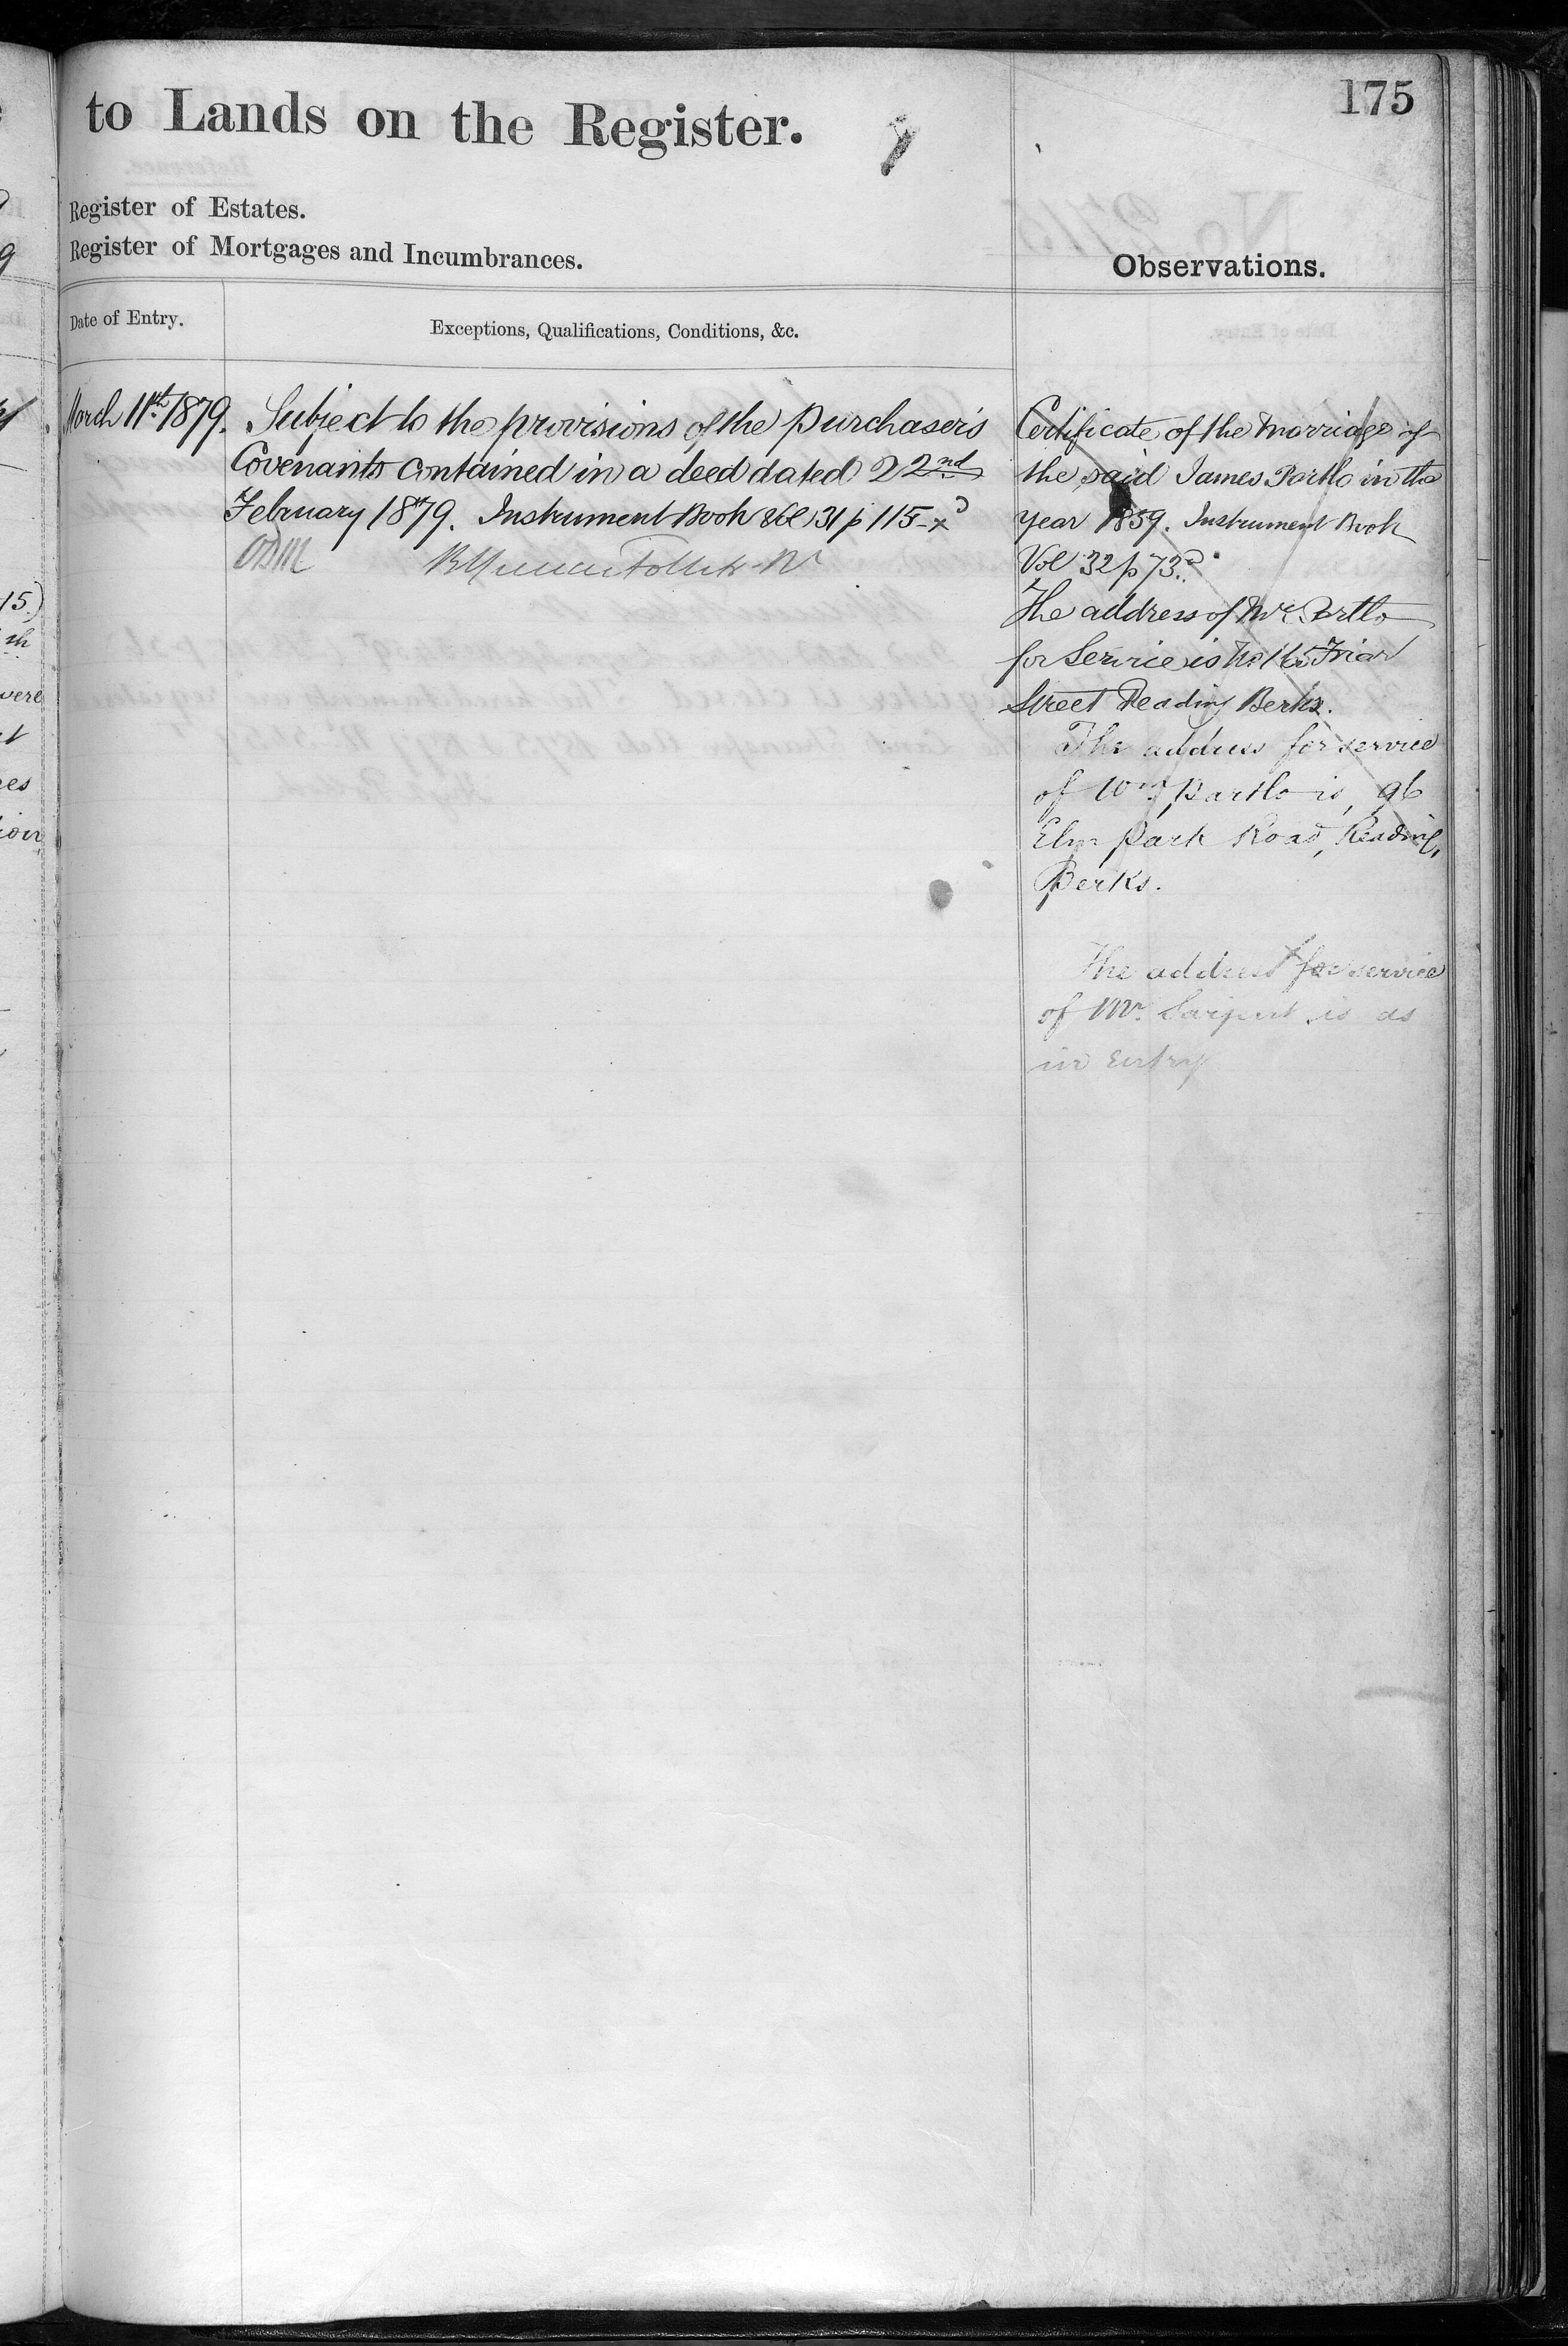 175
to Lands on the Register.
Register of Estates.
Register of Mortgages and Incumbrances.
Observations.
Date of Entry.
Exceptions, Qualifications, Conditions, &c.
March 11th 1879.
Subject to the provisions of the Purchasers
Covenants contained in a deed dated 22nd
February 1879. Instrument Book Vol 31 p 115
Certificate of the Marriage of
the said James Portlo in the
year 1859. Instrument Book
Vol 32 p 73.
The address of Mr. Portlo
for Service is No 165 Friar
Street Reading Berks.
The address for service
of Wm Partlo is, 96
Elm Park Road, Reading,
Berks.
The address for service
of Mr. Sargent is as
in Entry